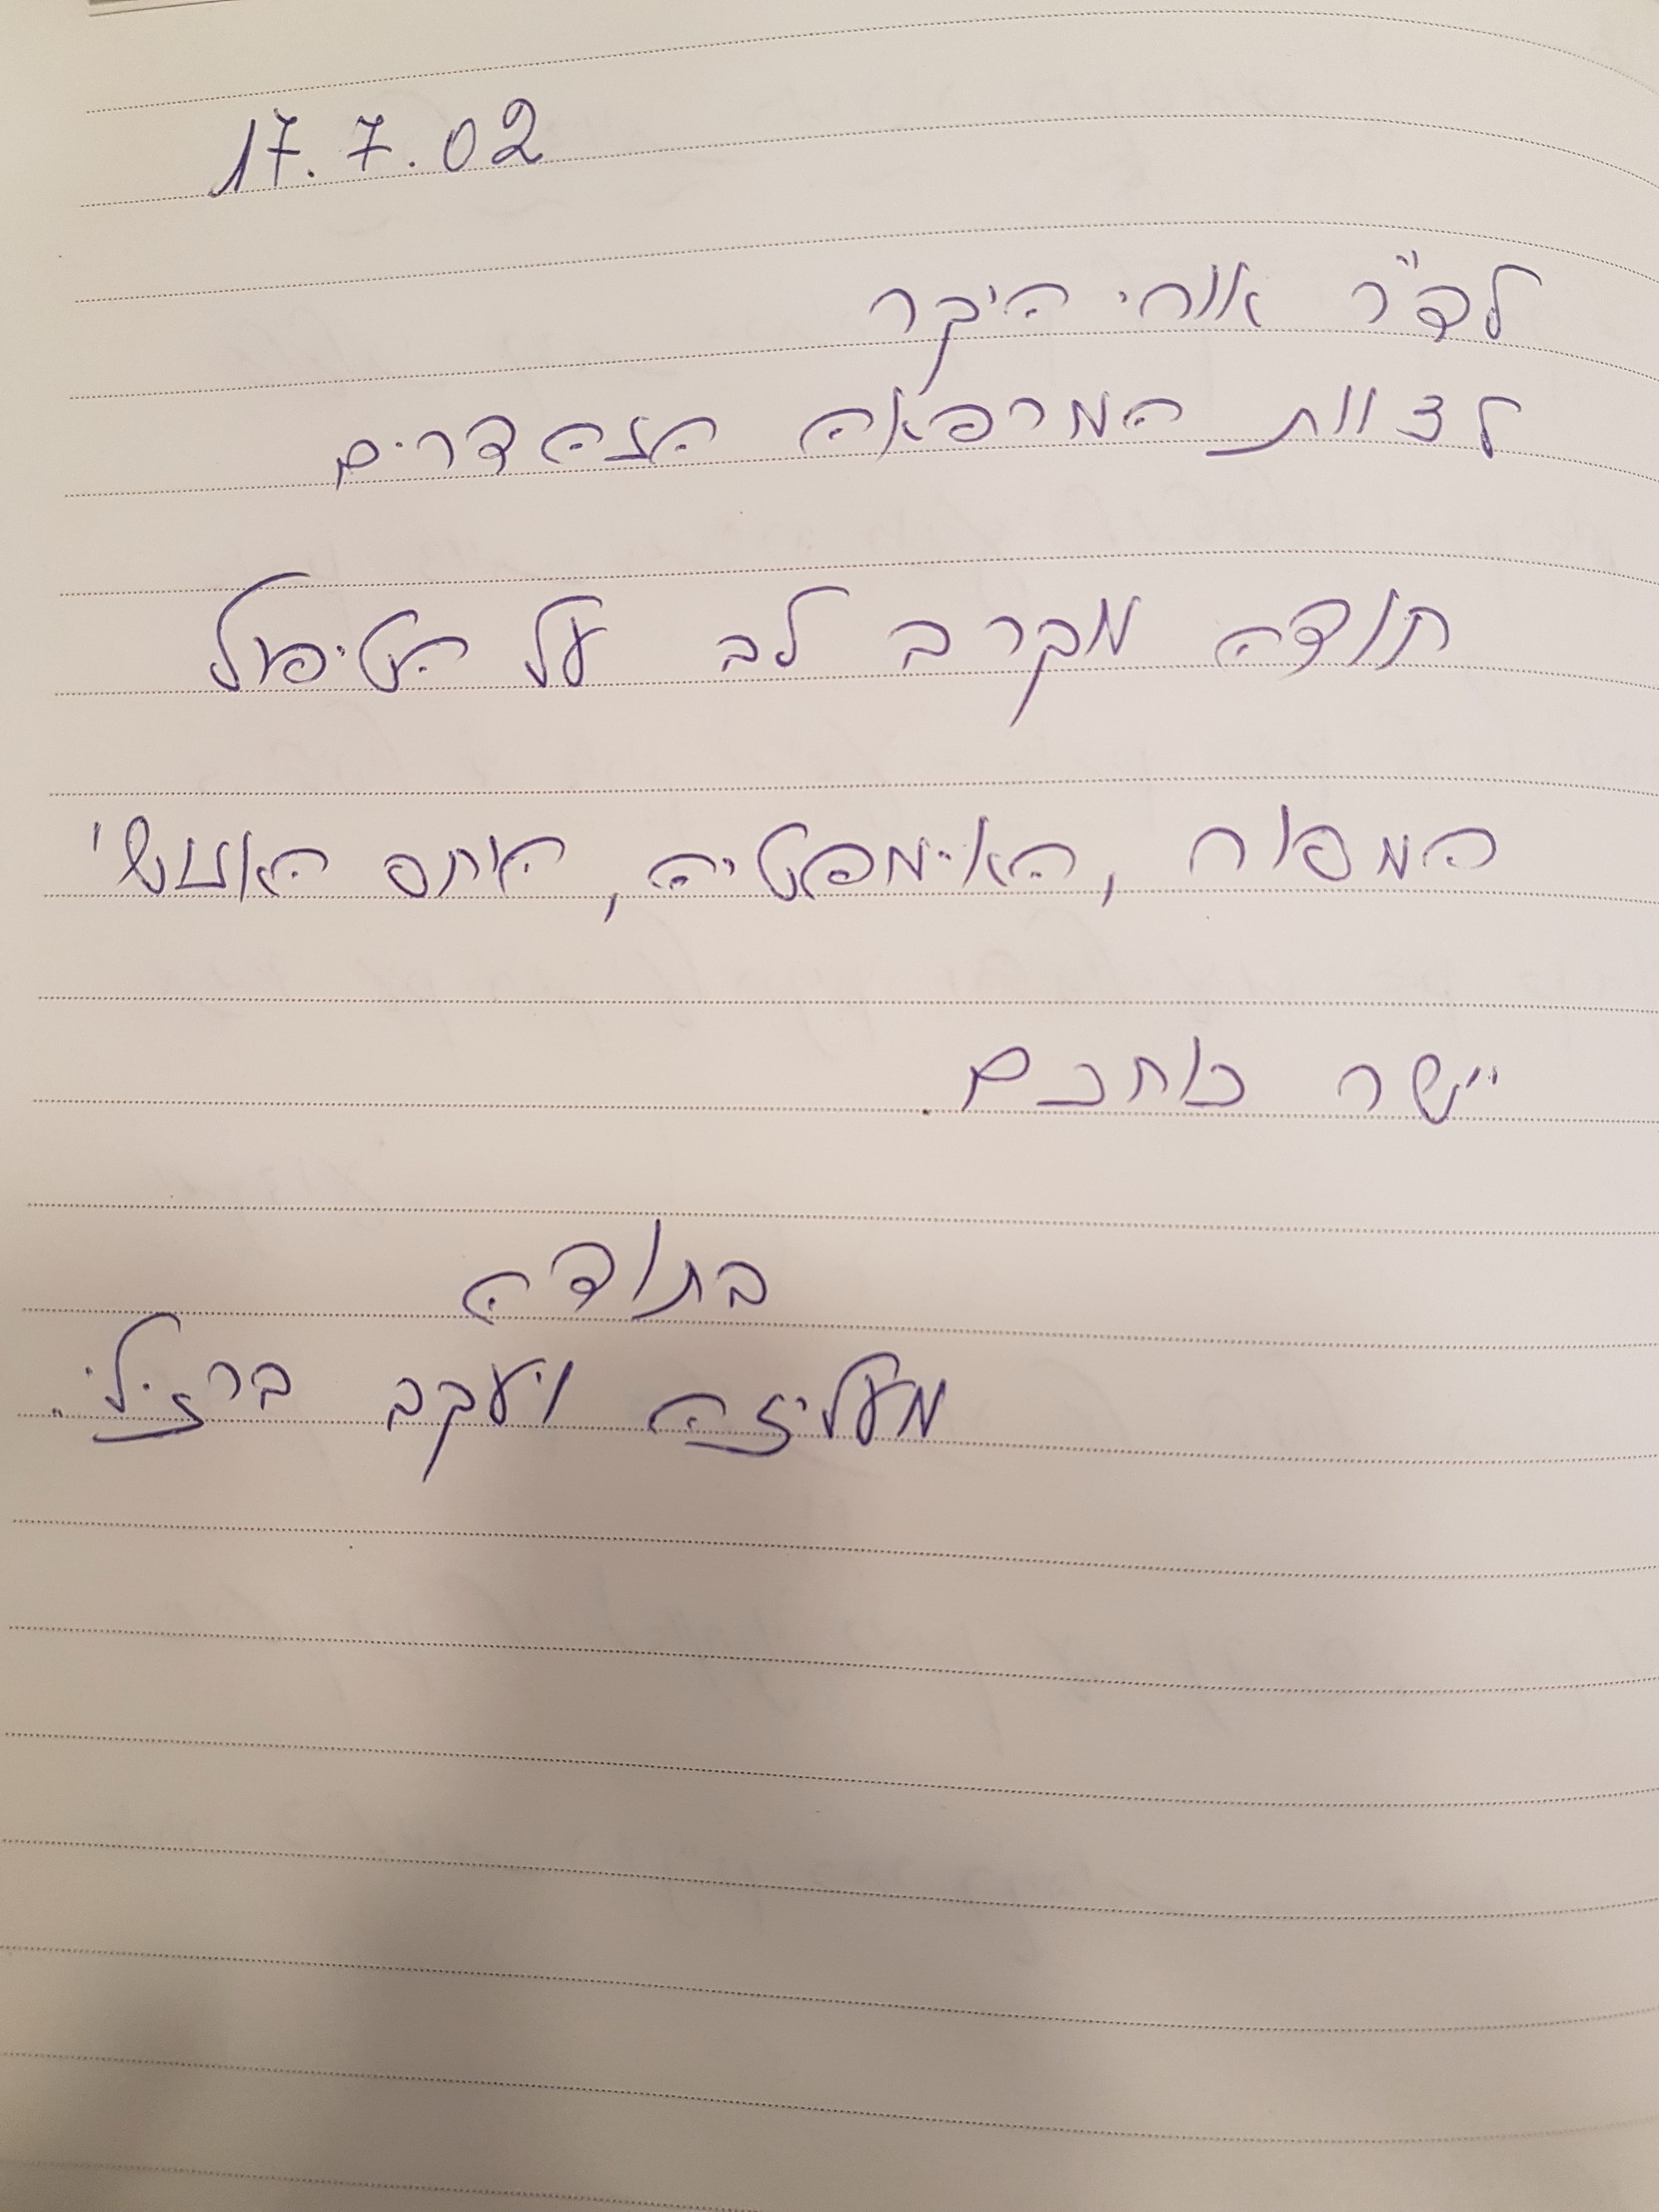 17.7.02
לד"ר אורי היקר
לצוות המרפאה הנהדרים
תודה מקרב לב על הטיפול
המסור, האימפטיה, היחס האנושי
יישר כוחכם.
בתודה
מעליזה ויעקב ברזילי..